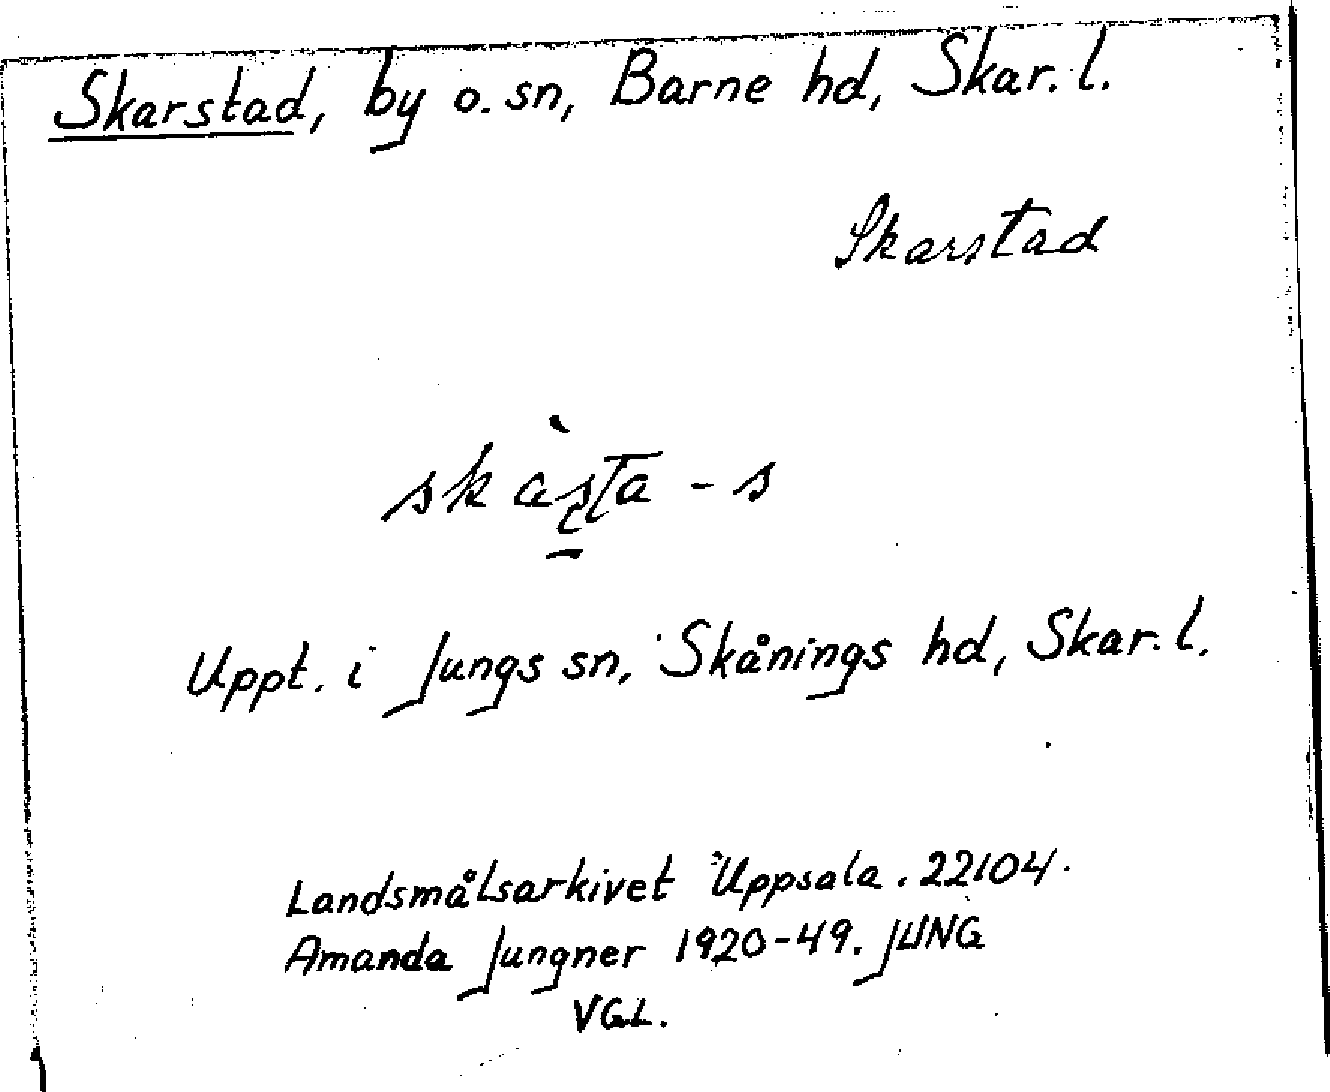 Skarstad, by o. sn, Barne hd, Skar. l.
Skarstad
skàsta - s
Uppt. i Jungs sn, Skånings hd, Skar. l.
Landsmålsarkivet Uppsala. 22104.
Amanda Jungner 1920-49. JUNG
VGL.